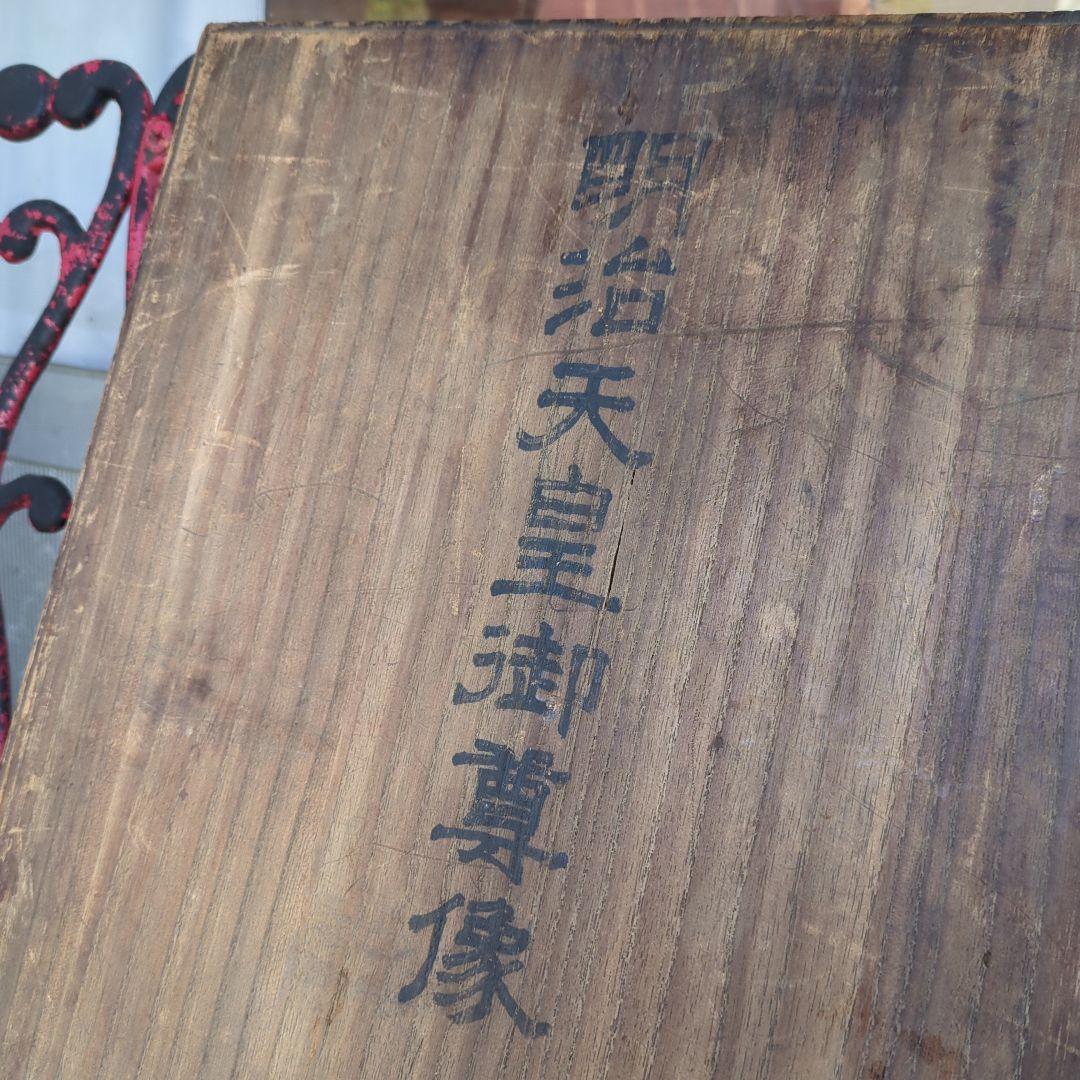 明治天皇御尊像